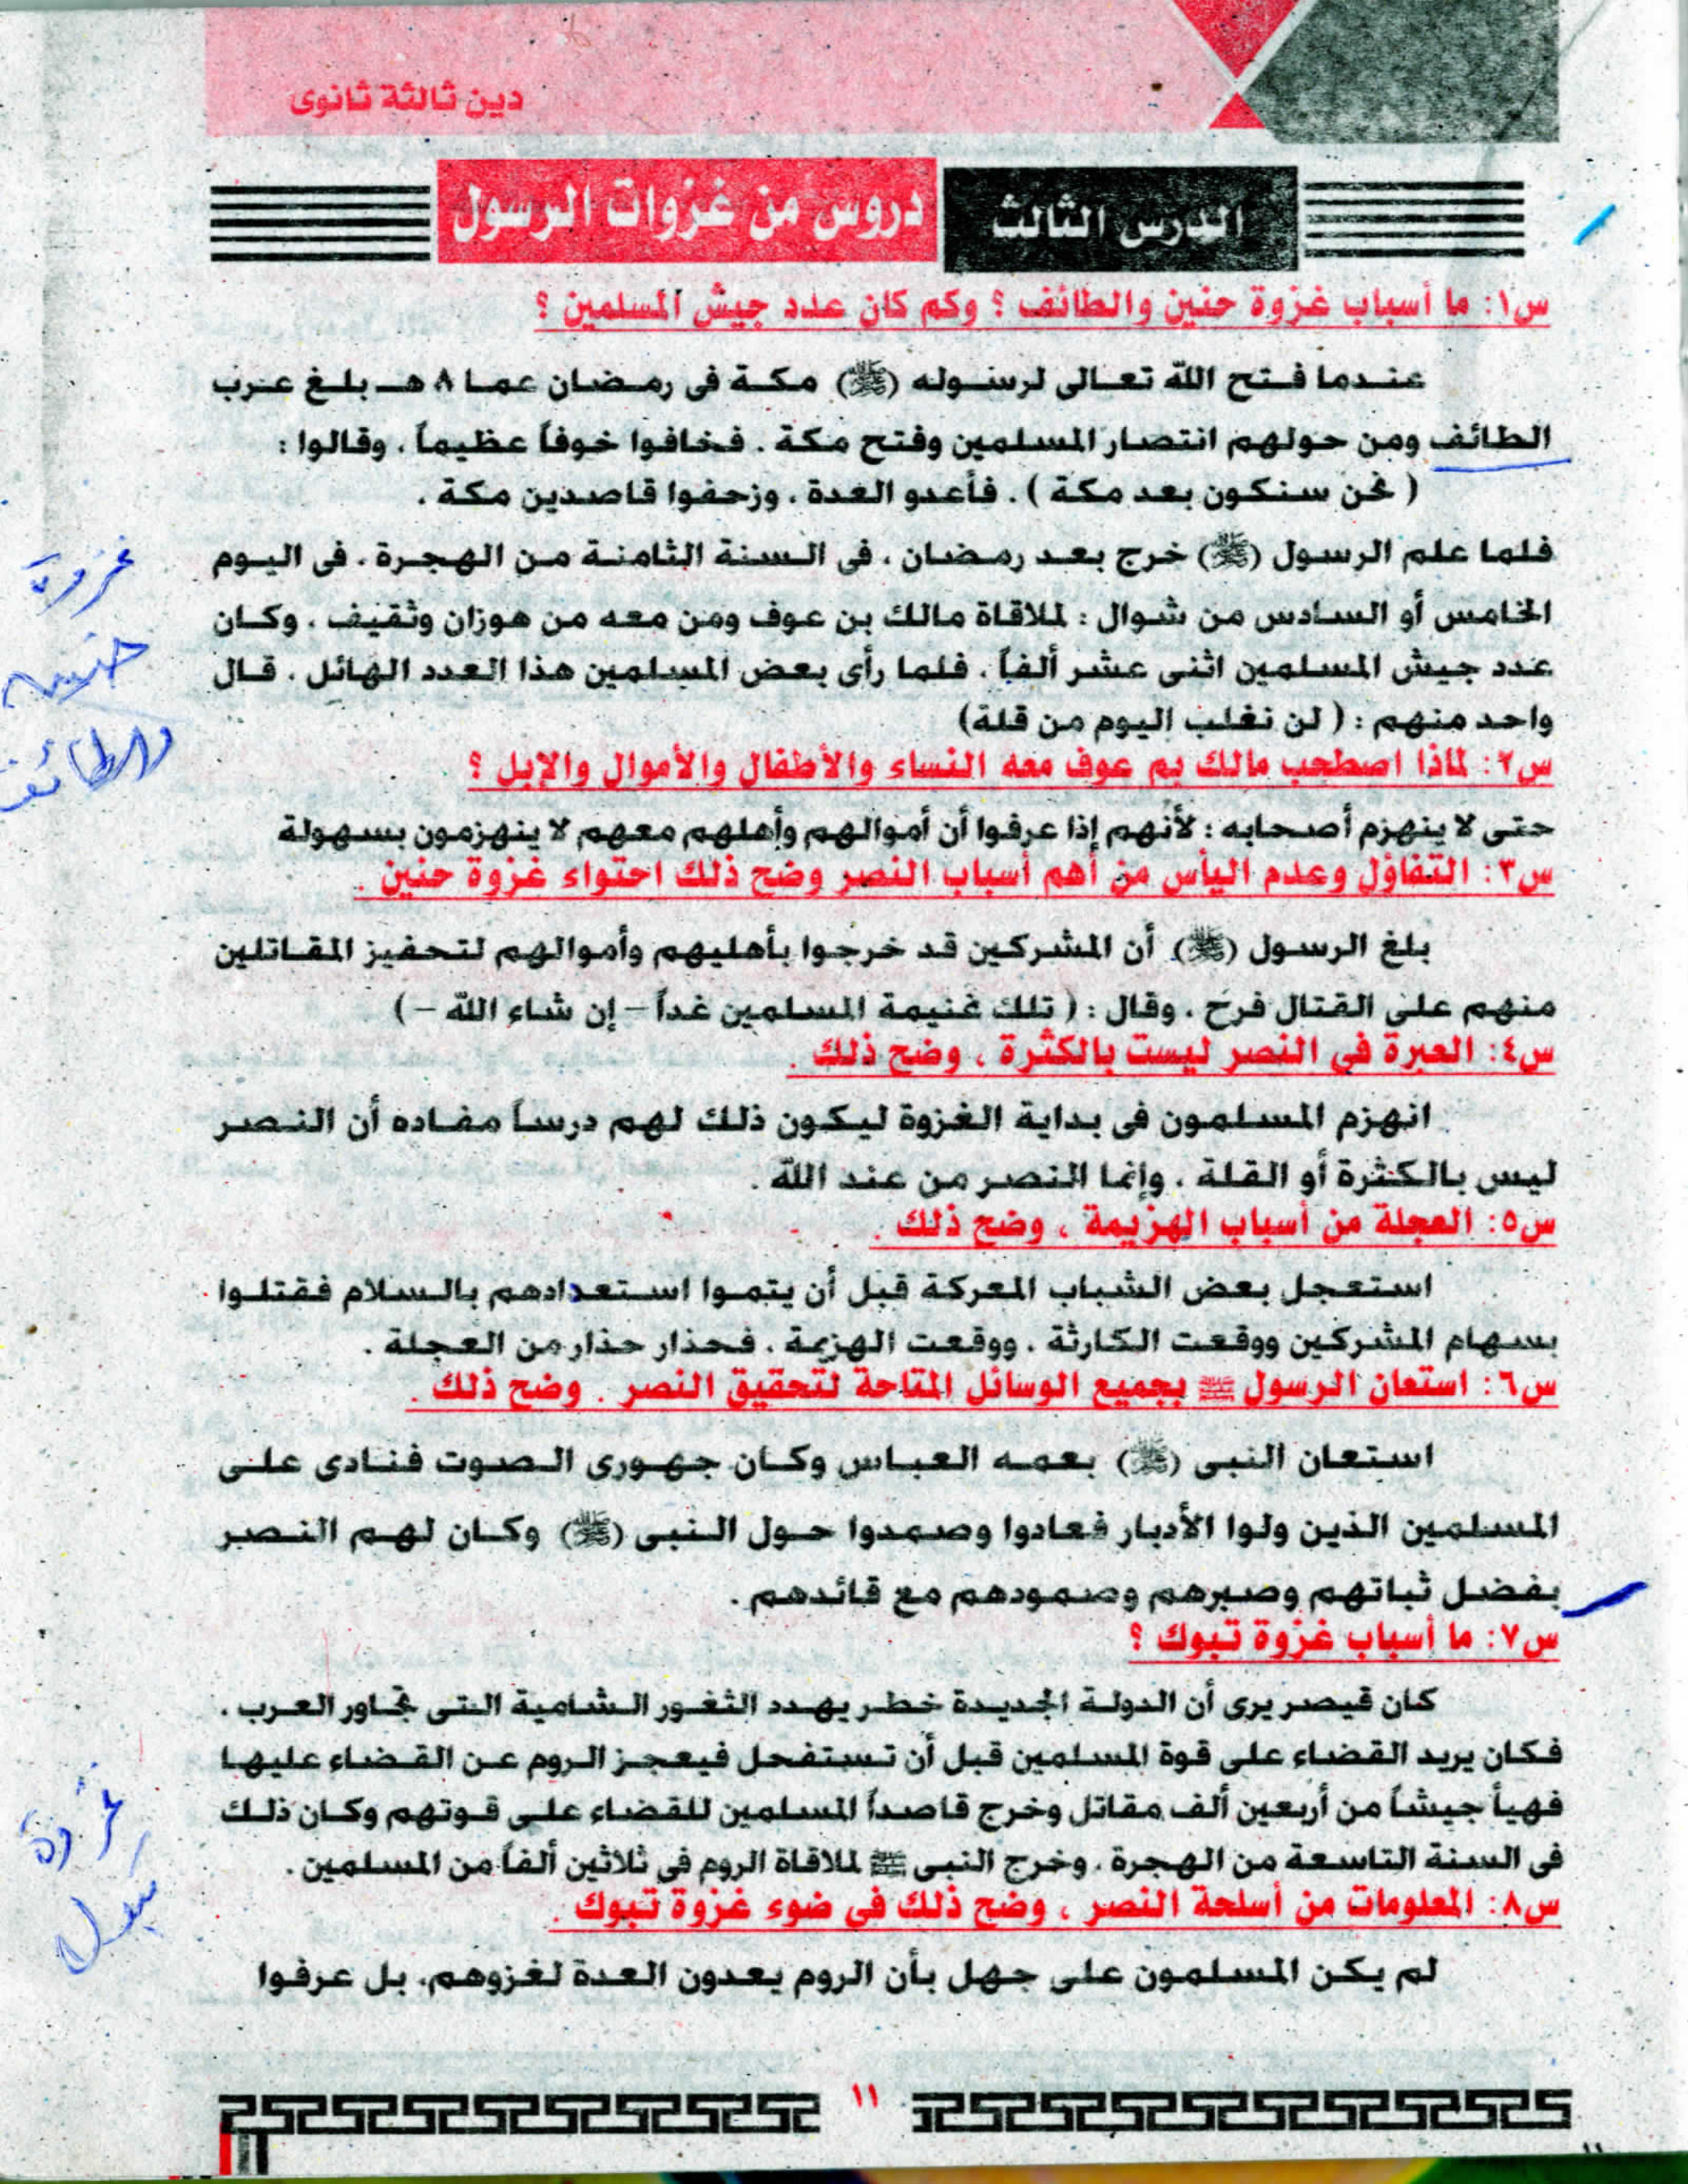 دين ثالثة ثانوى
الدرس الثالث
دروس من غزوات الرسول
س١: ما أسباب غزوة حنين والطائف ؟ وكم كان عدد جيش المسلمين ؟
عندما فتح الله تعالى لرسوله (ﷺ) مكة فى رمضان عما ٨ هـ بلغ عرب
الطائف ومن حولهم انتصار المسلمين وفتح مكة . فخافوا خوفاً عظيماً ، وقالوا :
( نحن سنكون بعد مكة ) . فأعدو العدة ، وزحفوا قاصدين مكة .
فلما علم الرسول (ﷺ) خرج بعد رمضان ، فى السنة الثامنة من الهجرة ، فى اليوم
الخامس أو السادس من شوال : لملاقاة مالك بن عوف ومن معه من هوزان وثقيف ، وكان
عدد جيش المسلمين اثنى عشر ألفاً ، فلما رأى بعض المسلمين هذا العدد الهائل ، قال
واحد منهم : ( لن نغلب اليوم من قلة)
س٢: لماذا اصطحب مالك بم عوف معه النساء والأطفال والأموال والإبل ؟
حتى لا ينهزم أصحابه : لأنهم إذا عرفوا أن أموالهم وأهلهم معهم لا ينهزمون بسهولة
س٣: التفاؤل وعدم اليأس من أهم أسباب النصر وضح ذلك احتواء غزوة حنين .
بلغ الرسول (ﷺ) أن المشركين قد خرجوا بأهليهم وأموالهم لتحفيز المقاتلين
منهم على القتال فرح ، وقال : ( تلك غنيمة المسلمين غداً – إن شاء الله –)
س٤: العبرة في النصر ليست بالكثرة ، وضح ذلك .
انهزم المسلمون فى بداية الغزوة ليكون ذلك لهم درساً مفاده أن النصر
ليس بالكثرة أو القلة ، وإنما النصر من عند الله .
س٥: العجلة من أسباب الهزيمة ، وضح ذلك .
استعجل بعض الشباب المعركة قبل أن يتموا استعدادهم بالسلام فقتلوا
بسهام المشركين ووقعت الكارثة ، ووقعت الهزيمة ، فحذار حذار من العجلة .
س٦: استعان الرسول ﷺ بجميع الوسائل المتاحة لتحقيق النصر . وضح ذلك .
استعان النبى (ﷺ) بعمه العباس وكان جهورى الصوت فنادى على
المسلمين الذين ولوا الأدبار فعادوا وصمدوا حول النبى (ﷺ) وكان لهم النصر
بفضل ثباتهم وصبرهم وصمودهم مع قائدهم .
س٧: ما أسباب غزوة تبوك ؟
كان قيصر يرى أن الدولة الجديدة خطر يهدد الثغور الشامية التى تجاور العرب ،
فكان يريد القضاء على قوة المسلمين قبل أن تستفحل فيعجز الروم عن القضاء عليها
فهيأ جيشاً من أربعين ألف مقاتل وخرج قاصداً المسلمين للقضاء على قوتهم وكان ذلك
فى السنة التاسعة من الهجرة ، وخرج النبى ﷺ لملاقاة الروم فى ثلاثين ألفاً من المسلمين .
س٨: المعلومات من أسلحة النصر ، وضح ذلك في ضوء غزوة تبوك .
لم يكن المسلمون على جهل بأن الروم يعدون العدة لغزوهم، بل عرفوا
١١
غزوة
حنين
والطائف
غزوة
تبوك